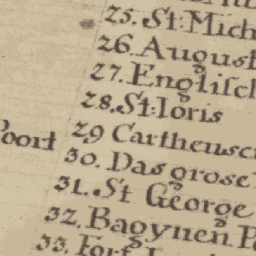 25. St: Mich
26. August
27. Englisch
28. St: Ioris
29 Cartheuser
Poort
30. Das grose
31. St George
32. Bagynen P
33. Fort